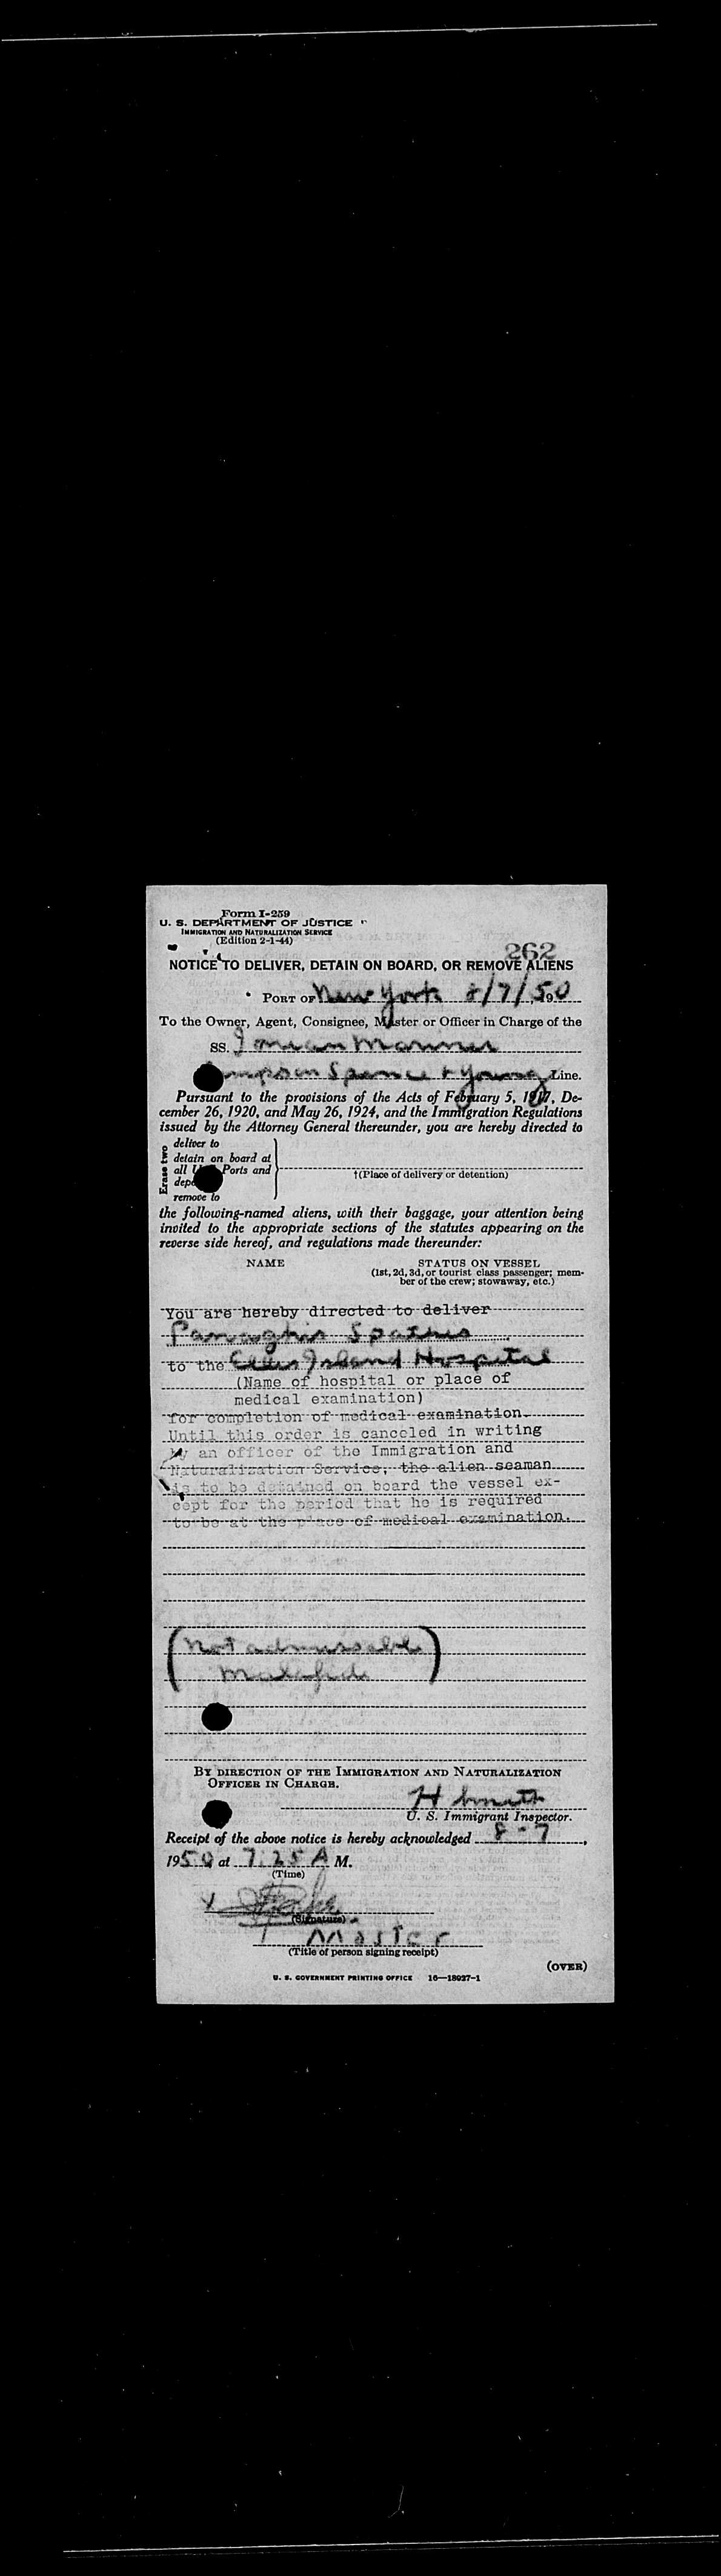 Form I-259
U. S. DEPARTMENT OF JUSTICE
IMMIGRATION AND NATURALIZATION SERVICE
(Edition 2-1-44)
262
NOTICE TO DELIVER, DETAIN ON BOARD, OR REMOVE ALIENS
PORT OF New York 8/7/50
To the Owner, Agent, Consignee, Master or Officer in Charge of the
SS. Ionian Mariner
Simpson Spence & Young Line.
Pursuant to the provisions of the Acts of February 5, 1917, De-
cember 26, 1920, and May 26, 1924, and the Immigration Regulations
issued by the Attorney General thereunder, you are hereby directed to
Erase two
deliver to
detain on board at
all Ports and
remove to
†(Place of delivery or detention)
the following-named aliens, with their baggage, your attention being
invited to the appropriate sections of the statutes appearing on the
reverse side hereof, and regulations made thereunder:
NAME STATUS ON VESSEL
(1st, 2d, 3d, or tourist class passenger; mem-
ber of the crew; stowaway, etc.)
You are hereby directed to deliver
Panaghis Spathis
to the Ellis Island Hospital
(Name of hospital or place of
medical examination)
for completion of medical examination.
Until this order is canceled in writing
by an officer of the Immigration and
Naturalization Service, the alien seaman
is to be detained on board the vessel ex-
cept for the period that he is required
to be at the place of medical examination.
(Not admissable
Malafide)
BY DIRECTION OF THE IMMIGRATION AND NATURALIZATION
OFFICER IN CHARGE.
H Smith
U. S. Immigrant Inspector.
Receipt of the above notice is hereby acknowledged 8-7,
1950 at 7.25 A M.
(Time)
(Signature)
Master
(Title of person signing receipt)
(OVER)
U. S. GOVERNMENT PRINTING OFFICE 16—18027-1